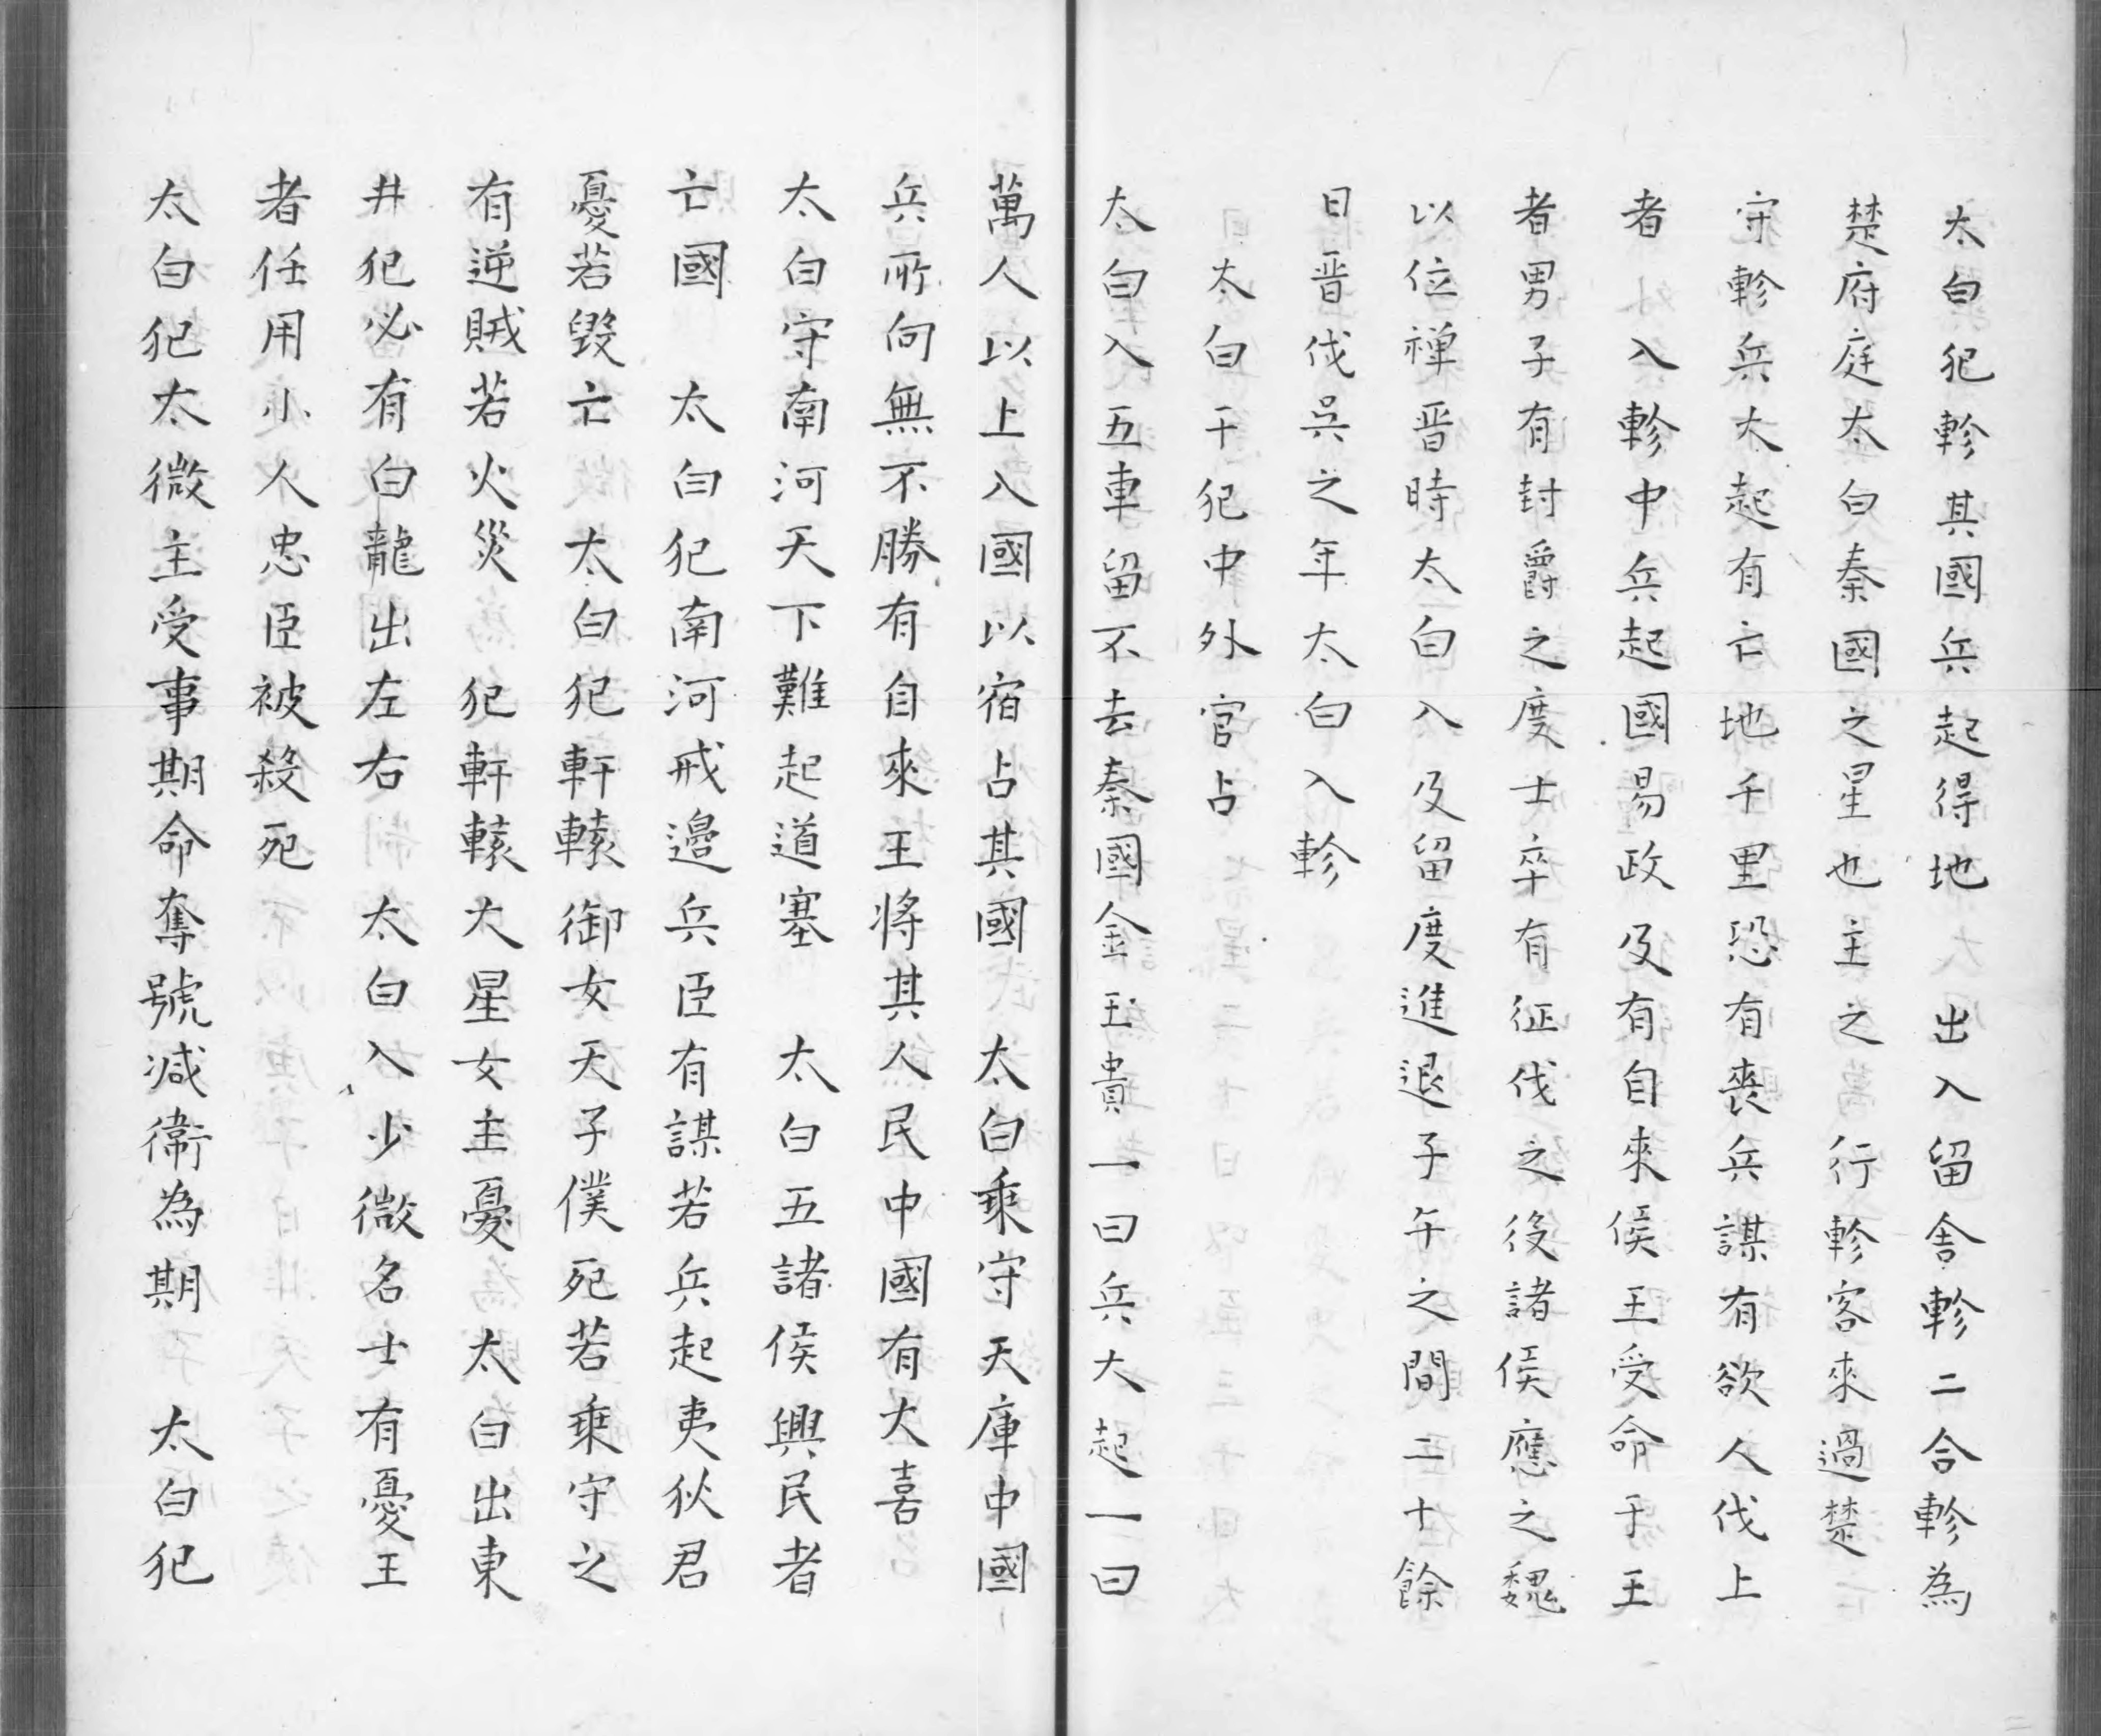 太白犯軫其國兵起得地　出入留舍軫二合軫為
楚府庭太白秦國之星也主之　行軫客來過楚
守軫兵大起有亡地千里恐有喪兵謀有欲人伐上
者　入軫中兵起國易政及有自來侯王受命于王
者男子有封爵之度士卒有征伐之後諸侯應之魏
以位禅晋時太白入及留度進退子午之間二十餘
日晋伐吳之年太白入軫
太白干犯中外官占
太白入五車留不去秦國金玉貴一曰兵大起一曰
萬人以上入國以宿占其國　太白乗守天庫中國
兵所向無不勝有自來王将其人民中國有大喜
太白守南河天下難起道塞　太白五諸侯興民者
亡國　太白犯南河戒邉兵臣有謀若兵起夷狄君
憂若毀亡　太白犯軒轅御女天子僕死若乗守之
有逆賊若火災　犯軒轅大星女主憂　太白出東
井犯必有白龍出左右　太白入少微名士有憂王
者任用小人忠臣被殺死
太白犯太微主受事期命奪號減衛為期　太白犯